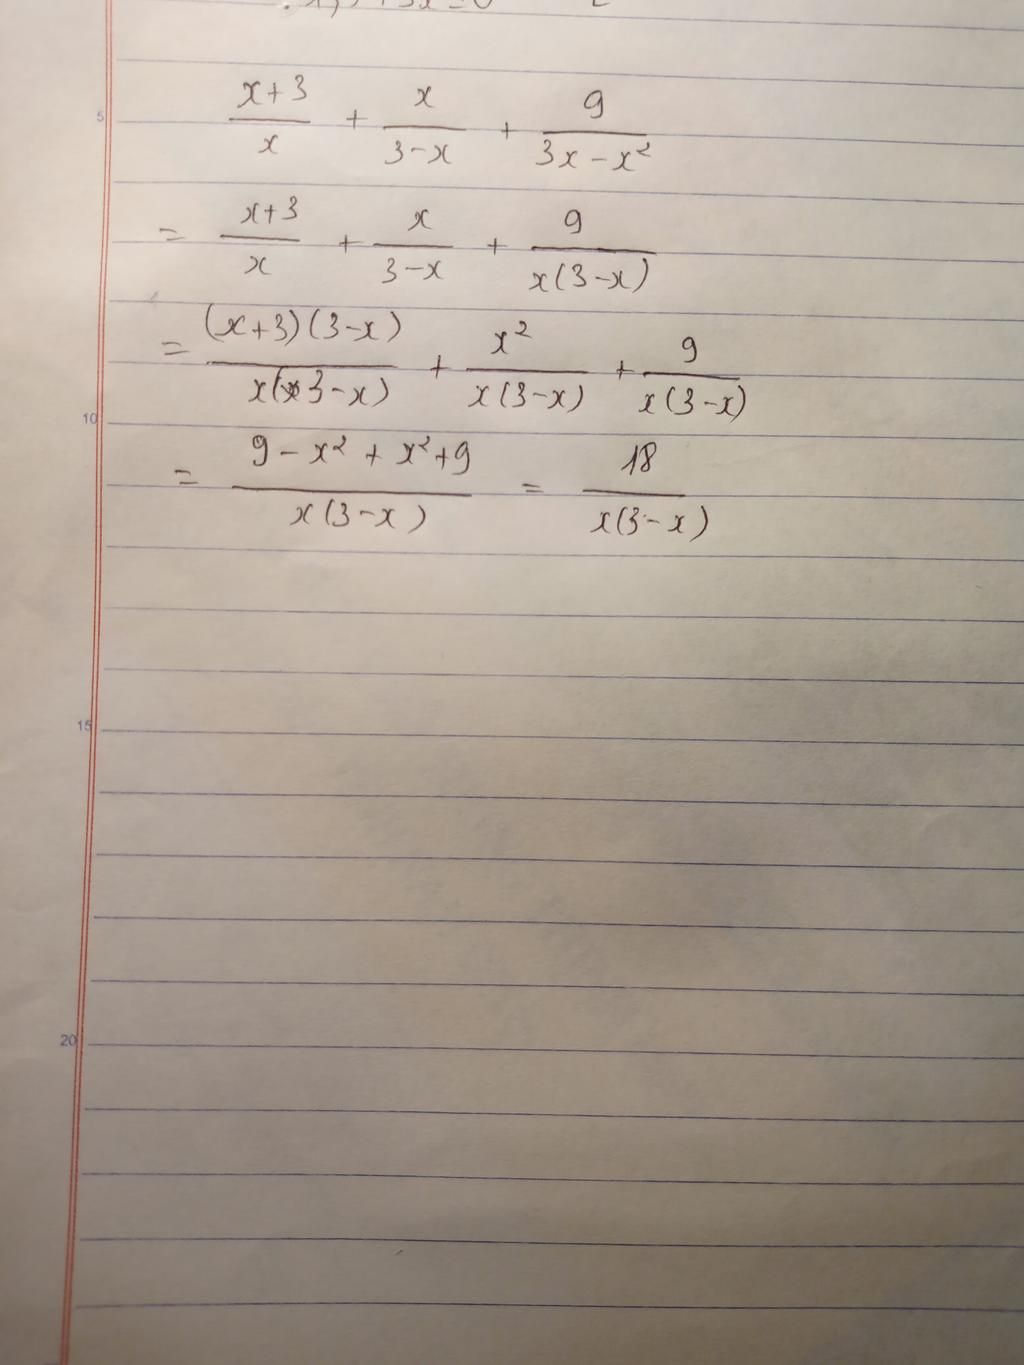 5
\frac{x+3}{x} + \frac{x}{3-x} + \frac{9}{3x-x^2}
= \frac{x+3}{x} + \frac{x}{3-x} + \frac{9}{x(3-x)}
= \frac{(x+3)(3-x)}{x(3-x)} + \frac{x^2}{x(3-x)} + \frac{9}{x(3-x)}
10
= \frac{9-x^2+x^2+9}{x(3-x)} = \frac{18}{x(3-x)}
15
20